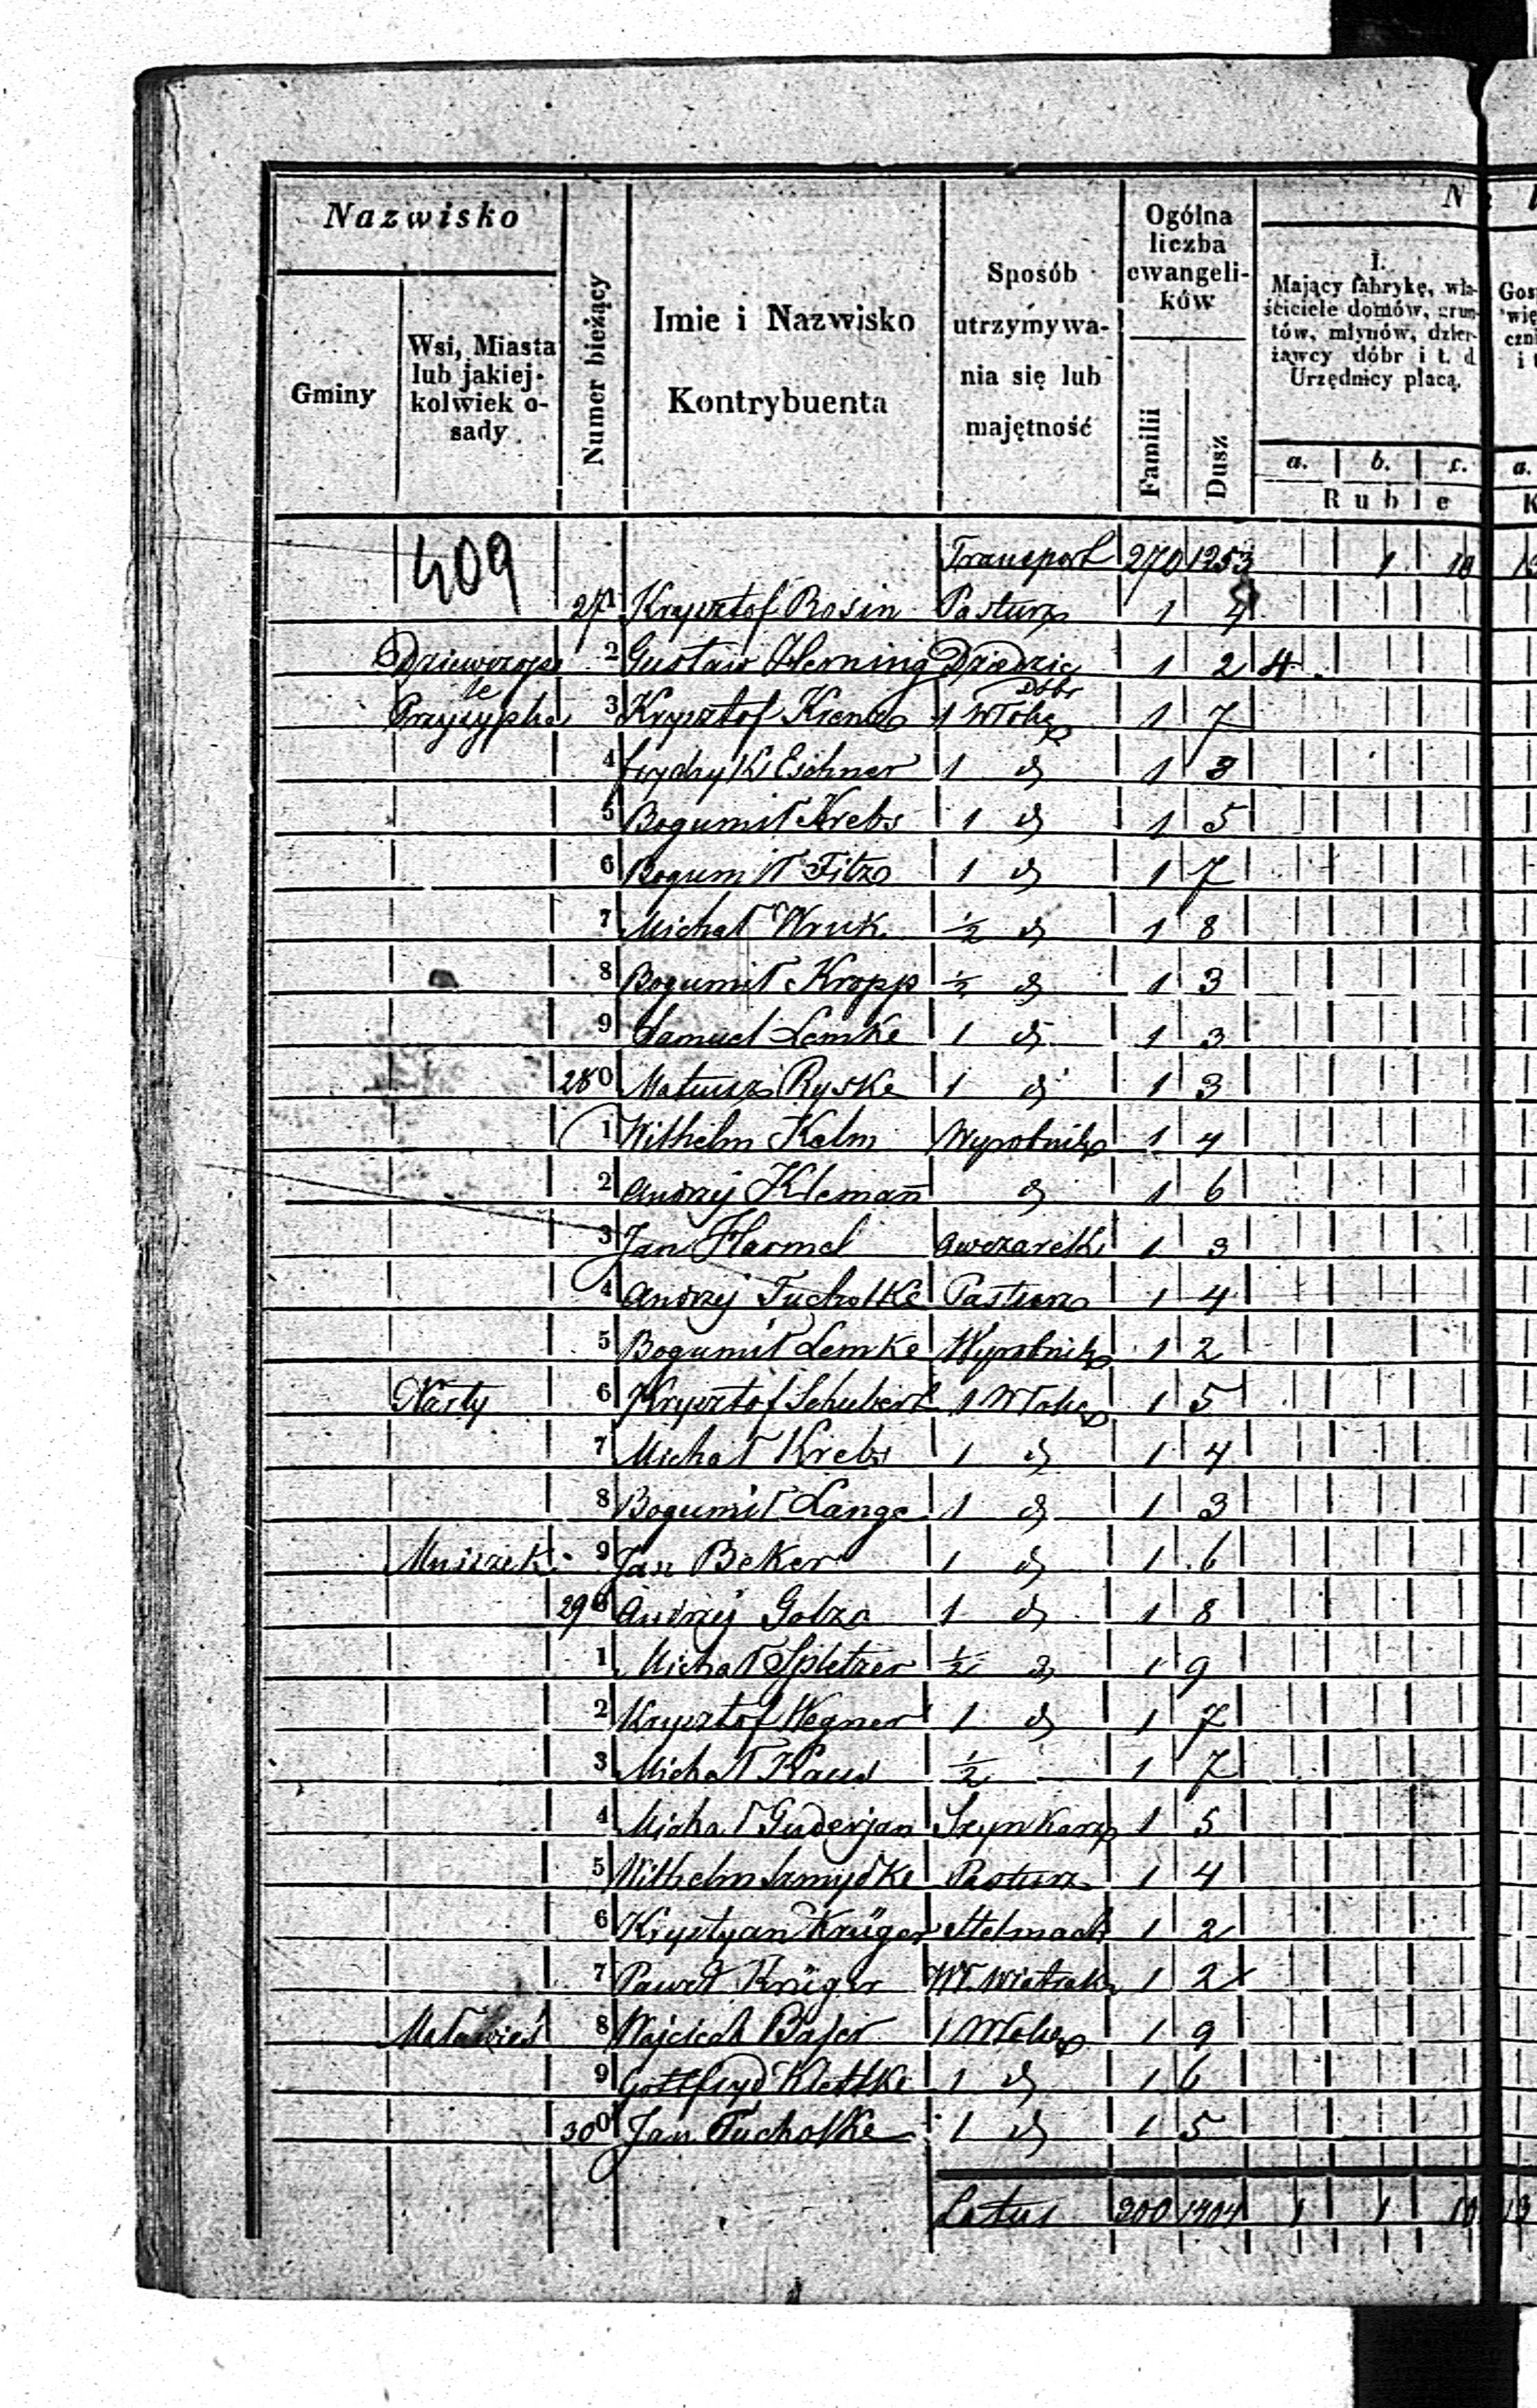 Nazwisko
Gminy
Wsi, Miasta lub jakiej- kolwiek o- sady
Numer bieżący
Imie i Nazwisko Kontrybuenta
Sposób utrzymywa- nia się lub majętność
Ogólna liczba ewangeli- ków
Familii
Dusz
N
I.
Mający fabrykę, wła- ściciele domów, grun- tów, młynów, dzier- żawcy dóbr i t. d Urzędnicy płacą.
a. b. c.
Ruble
a.
409
Transport 270 1253 1 10
271 Krysztof Rosin Pasturz 1 4
2 Gustaw Herning Dziedzic Dóbr 1 2 4
3 Krysztof Kienz 1 Włókę 1 7
4 frydryk Eichner 1 d 1 3
5 Bogumił Krebs 1 d 1 5
6 Bogumił Fitz 1 d 1 7
7 Michał Wruk ½ d 1 8
8 Bogumił Kropp ½ d 1 3
9 Samuel Lemke 1 d 1 3
280 Matusz Ryske 1 d 1 3
1 Wilhelm Kelm Wyrobnik 1 4
2 Andrzej Klemañ d 1 6
3 Jan Harmel 1 3
4 Andrzej Tucholke Pasturz 1 4
5 Bogumił Lemke Wyrobnik 1 2
Narty 6 Krysztof Schubert 1 Włókę 1 5
7 Michał Krebs 1 d 1 4
8 Bogumił Lange 1 d 1 3
Mniszek 9 Jan Beker 1 d 1 6
290 Andrzej Golza 1 d 1 8
1 Michał Spletzer ½ d 1 9
2 Krysztof Wegner 1 d 1 7
3 Michał ½ 1 7
4 Michał Guderjan Szynkarz 1 5
5 Wilhelm Szmydke Pasturz 1 4
6 Krystyan Krüger Stelmach 1 2
7 Paweł Krüger Wł. Wiatraka 1 2
Maławieś 8 Wojciech Bajer 1 Włókę 1 9
9 Gottfryd Klettke 1 d 1 6
300 Jan Tucholke 1 d 1 5
Latus 300 1404 1 1 10 13